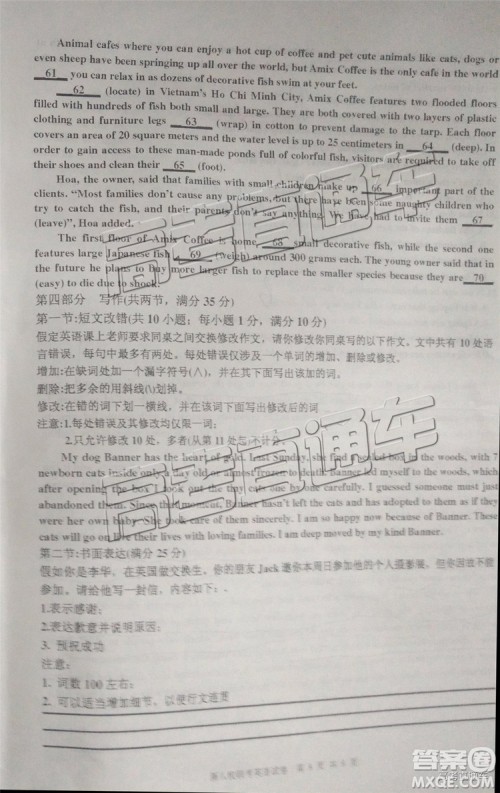 Animal cafes where you can enjoy a hot cup of coffee and pet cute animals like cats, dogs or
even sheep have been springing up all over the world, but Amix Coffee is the only cafe in the world
61 you can relax in as dozens of decorative fish swim at your feet.
62 (locate) in Vietnam's Ho Chi Minh City, Amix Coffee features two flooded floors
filled with hundreds of fish both small and large. They are both covered with two layers of plastic
clothing and furniture legs 63 (wrap) in cotton to prevent damage to the tarp. Each floor
covers an area of 20 square meters and the water level is up to 25 centimeters in 64 (deep). In
order to gain access to these man-made ponds full of colorful fish, visitors are required to take off
their shoes and clean their 65 (foot).
Hoa, the owner, said that families with small children make up 66 important part of the
clients. "Most families don't cause any problems, but there have been some naughty children who
try to catch the fish, and their parents don't say anything. We have had to invite them 67
(leave)", Hoa added.
The first floor of Amix Coffee is home 68 small decorative fish, while the second one
features large Japanese fish 69 (weigh) around 300 grams each. The young owner said that in
the future he plans to buy more larger fish to replace the smaller species because they are 70
(easy) to die due to shock.
第四部分 写作(共两节，满分 35 分)
第一节:短文改错(共 10 小题；每小题 1 分，满分 10 分)
假定英语课上老师要求同桌之间交换修改作文，请你修改你同桌写的以下作文。文中共有 10 处语
言错误，每句中最多有两处。每处错误仅涉及一个单词的增加、删除或修改。
增加:在缺词处加一个漏字符号(∧)，并在其下面写出该加的词
删除:把多余的用斜线(\)划掉。
修改:在错的词下划一横线，并在该词下面写出修改后的词
注意:1.每处错误及其修改均仅限一词；
2.只允许修改 10 处，多者(从第 11 处起)不计分。
My dog Banner has the heart of gold. Last Sunday, she find a closed box in the woods, with 7
newborn cats inside only a day old or almost frozen to death. Banner led myself to the woods, which
after opening the box I took out the tiny cats one by one carefully. I guessed someone must just
abandoned them. Since that moment, Banner hasn't left the cats and has adopted to them as if they
were her own baby. She took care of them sincerely. I am so happy now because of Banner. These
cats will go on live their lives with loving families. I am deep moved by my kind Banner.
第二节:书面表达(满分 25 分)
假如你是李华，在英国做交换生。你的朋友 Jack 邀你本周日参加他的个人摄影展，但你因故不能
参加。请给他写一封信，内容如下:
1.表示感谢；
2.表达歉意并说明原因；
3. 预祝成功
注意:
1. 词数 100 左右；
2. 可以适当增加细节，以使行文连贯
高考直通车
答案圈
MXQE.COM